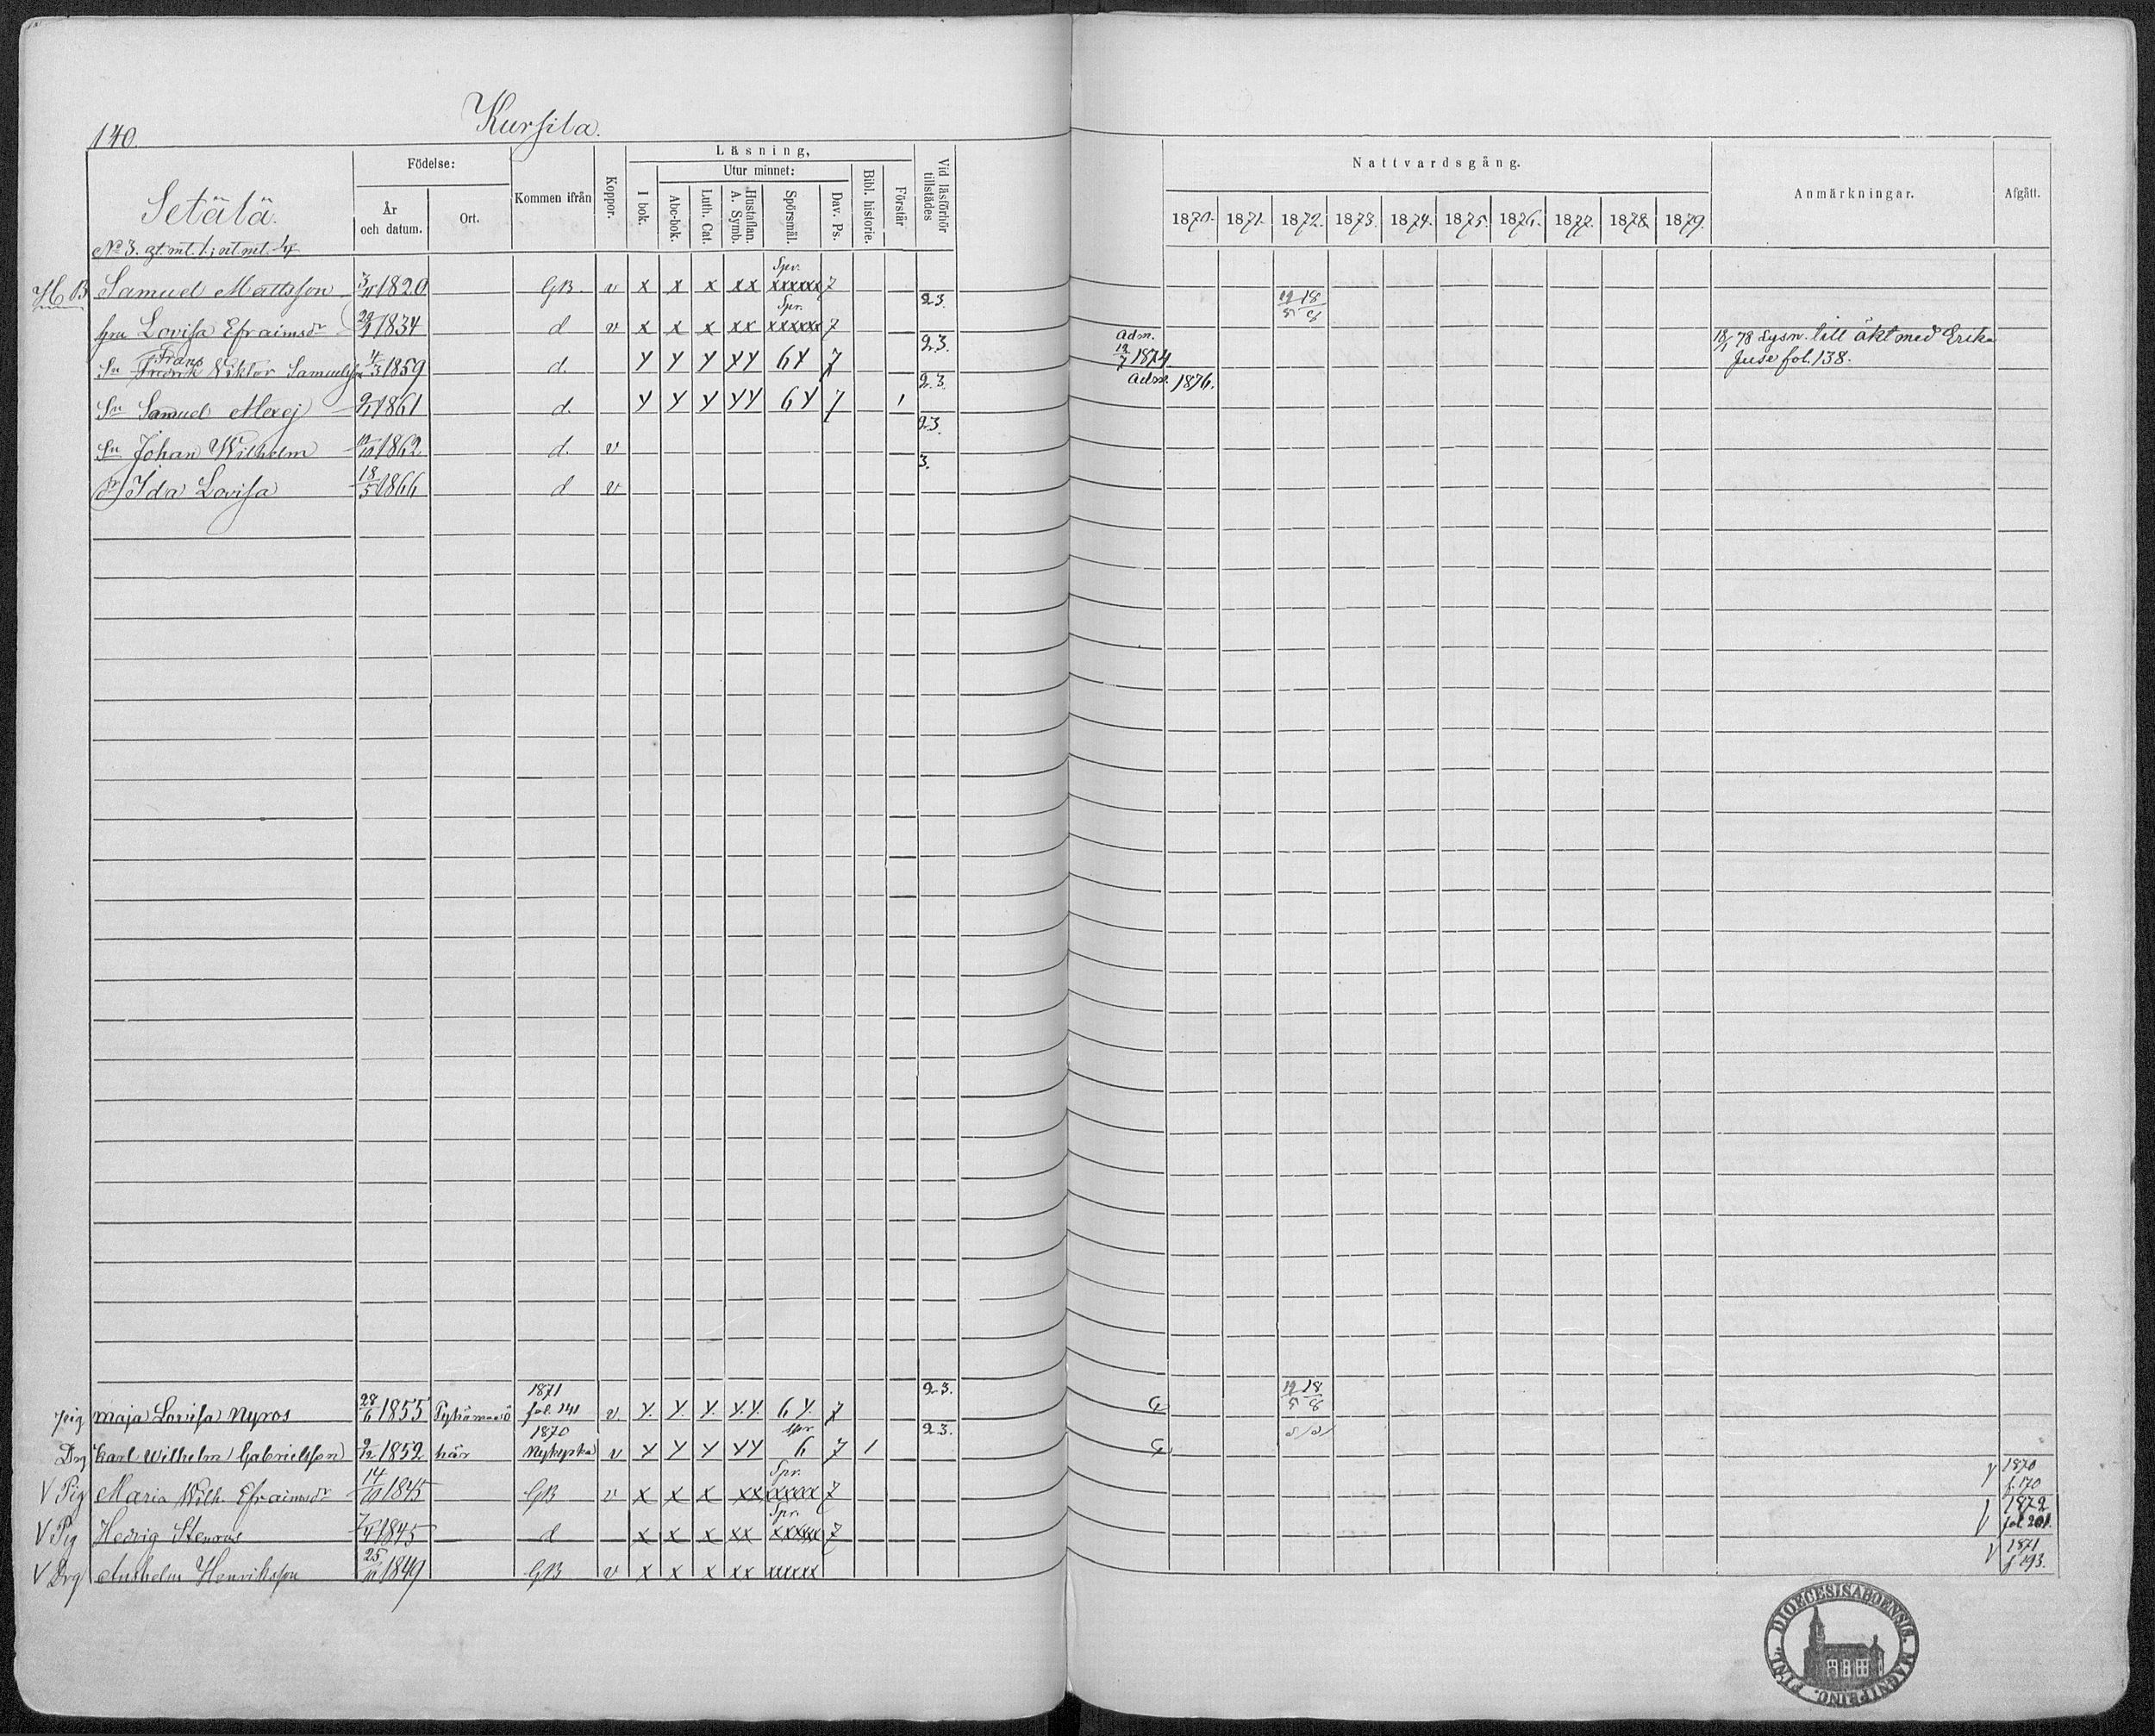 140.
Kursila.
Setälä.
No 3. gt. mt. 1; nt. mt. 1/4
Födelse:
År och datum.
Ort.
Kommen ifrån
Koppor.
Läsning,
I bok.
Utur minnet:
Abc-bok.
Luth. Cat.
Hustaflan. A. Symb.
Spörsmål.
Dav. Ps.
Bibl. historie.
Förstår
Vid läsförhör tillstädes
Nattvardsgång.
1870. 1871. 1872. 1873. 1874. 1875. 1876. 1877. 1878. 1879.
Anmärkningar.
Afgått.
HB Samuel Mattsson 3/11 1820 GB v x x x xx Spr. xxxxxx 7 12/5 18/8
hu Lovisa Efraimsdr 1834 d v x x x xx Spr. xxxxxx 7 23.
Sn Fredrik Frans Viktor Samuelsson 4/3 1859 d. y y y yy 6 y 7 23. Adm. 12/7 1874 18/1 78 Lysn. till äkt med Erika Juse fol. 138.
Sn Samuel Alexej 9/1 1861 d. y y y yy 6 y 7 1 23. Adm. 1876.
Sn Johan Wilhelm 1862 d. v 23.
dr Ida Lovisa 18/5 1866 d v 3.
pig maja Lovisa Nyros 28/6 1855 Pyhämaa 1871 fol. 141 v. y. y. y. y.y. 6 y. 7 23. G 12/5 18/8
Drg Karl Wilhelm Gabrielsson 9/12 1852 här 1870 Nykyrka v y y y yy Spr 6 7 1 23. G
V Pig Maria Wilh. Efraimsdr 14/10 1845 GB v x x x xx Spr. xxxxx 7 1870 f. 170
V Pig Hedvig Stenroos 7/4 1845 d x x x xx Spr. xxxxxx 7 1872 fol 201.
V Drg Anshelm Henriksson 25/10 1849 GB v x x x xx xxxxxx 1871 f 193.
DIOECESIS ABOENSIS. MAGNI PRINC. FINL.